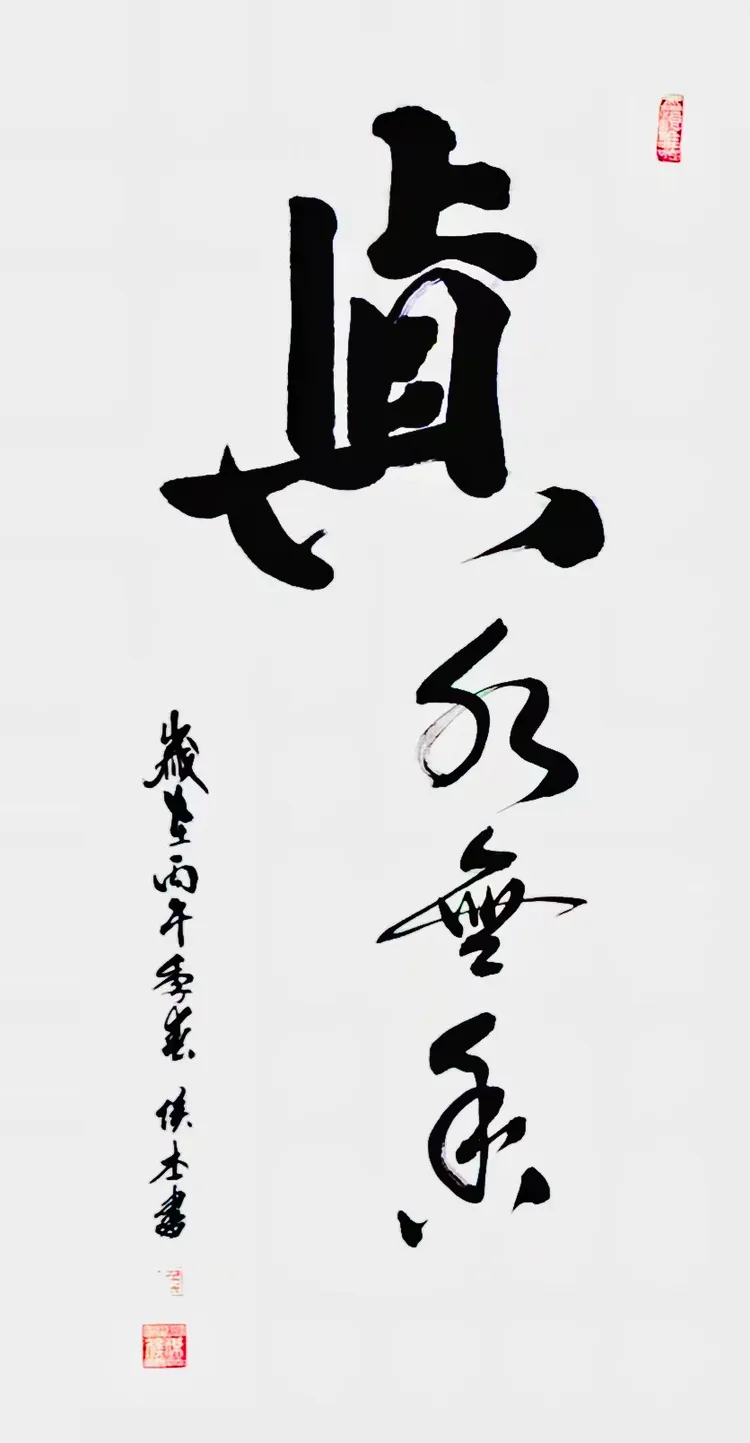 眞水無香
歲在丙午季春 侯杰書